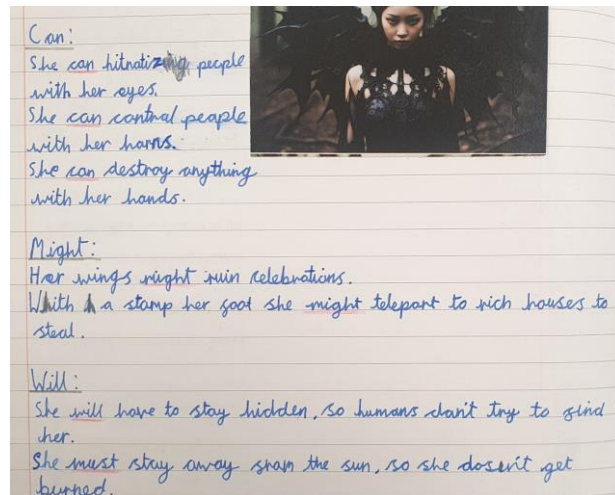 Can:
She can hitnatizing people
with her eyes.
She can control people
with her horns.
She can destroy anything
with her hands.
Might:
Her wings might ruin celebrations.
With a stamp her foot she might teleport to rich houses to
steal.
Will:
She will have to stay hidden, so humans don't try to find
her.
She must stay away from the sun, so she dosen't get
burned.